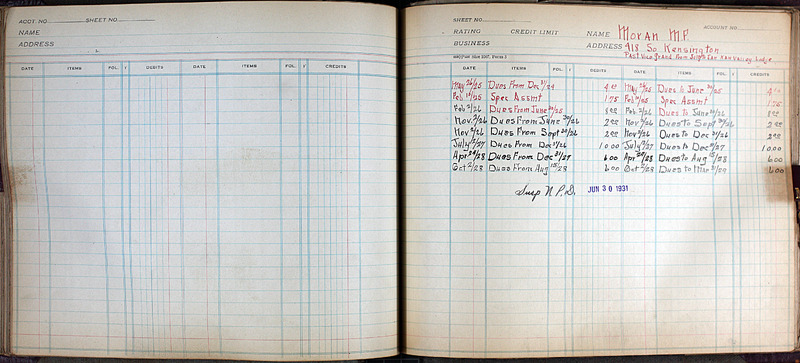 ACCT. NO. SHEET NO.
NAME
ADDRESS
DATE ITEMS FOL. √ DEBITS DATE ITEMS FOL. √ CREDITS
SHEET NO.
RATING CREDIT LIMIT NAME Moran M.P. ACCOUNT NO.
BUSINESS ADDRESS 418 So. Kensington
Past Vice Grand from Kaw Valley Lodge
DATE ITEMS FOL. √ DEBITS DATE ITEMS FOL. √ CREDITS
May 26/25 Dues From Dec 31/24 4 00 May 26/25 Dues to June 30/25 4 00
Feb 10/25 Spec Assmt 1 75 Feb 10/25 Spec Assmt 1 75
Feb 2/26 Dues From June 30/25 8 00 Feb 2/26 Dues To June 30/26 8 00
Nov 2/26 Dues From June 30/26 2 00 Nov 2/26 Dues to Sept 30/26 2 00
Nov 2/26 Dues From Sept 30/26 2 00 Nov 2/26 Dues to Dec 31/26 2 00
July 5/27 Dues From Dec 31/26 10 00 July 5/27 Dues to Dec 31/27 10 00
Apr 30/28 Dues From Dec 31/27 6 00 Apr 30/28 Dues to Aug 15/28 6 00
Oct 2/28 Dues From Aug 15/28 6 00 Oct 2/28 Dues to Mar 31/29 6 00
Susp N.P.D. JUN 30 1931